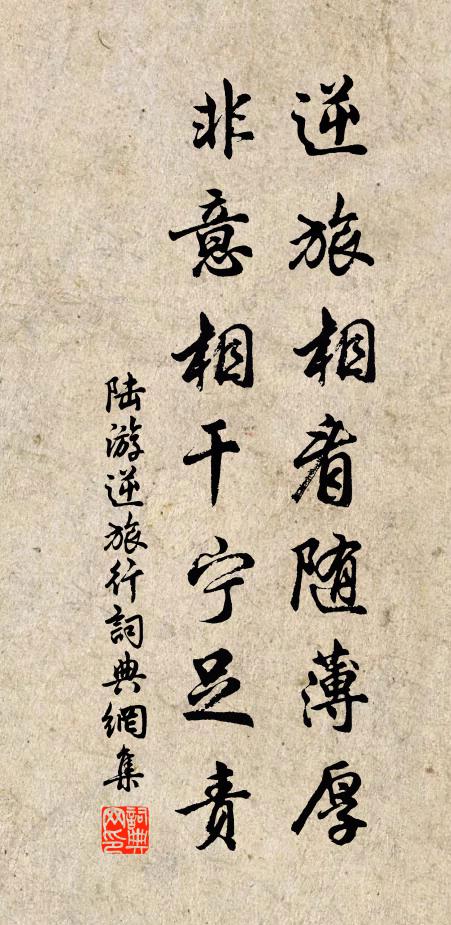 逆旅相看随薄厚
非意相干宁足责
陆游逆旅行詞典網集
詞典
网印